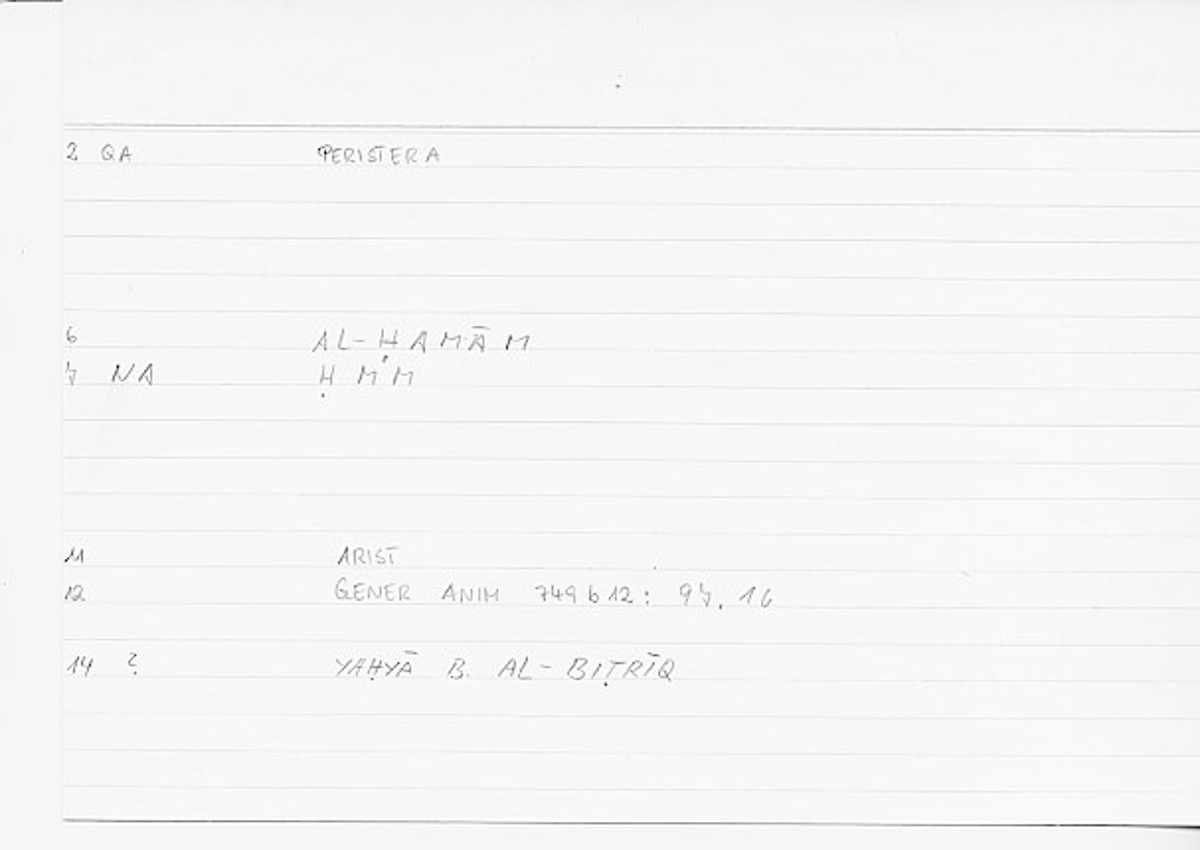 2 QA PERISTERA
6 AL-ḤAMĀM
7 NA ḤMM
11 ARIST
12 GENER ANIM 749 b 12: 97. 16
14 ? YAḤYĀ B. AL-BIṬRĪQ